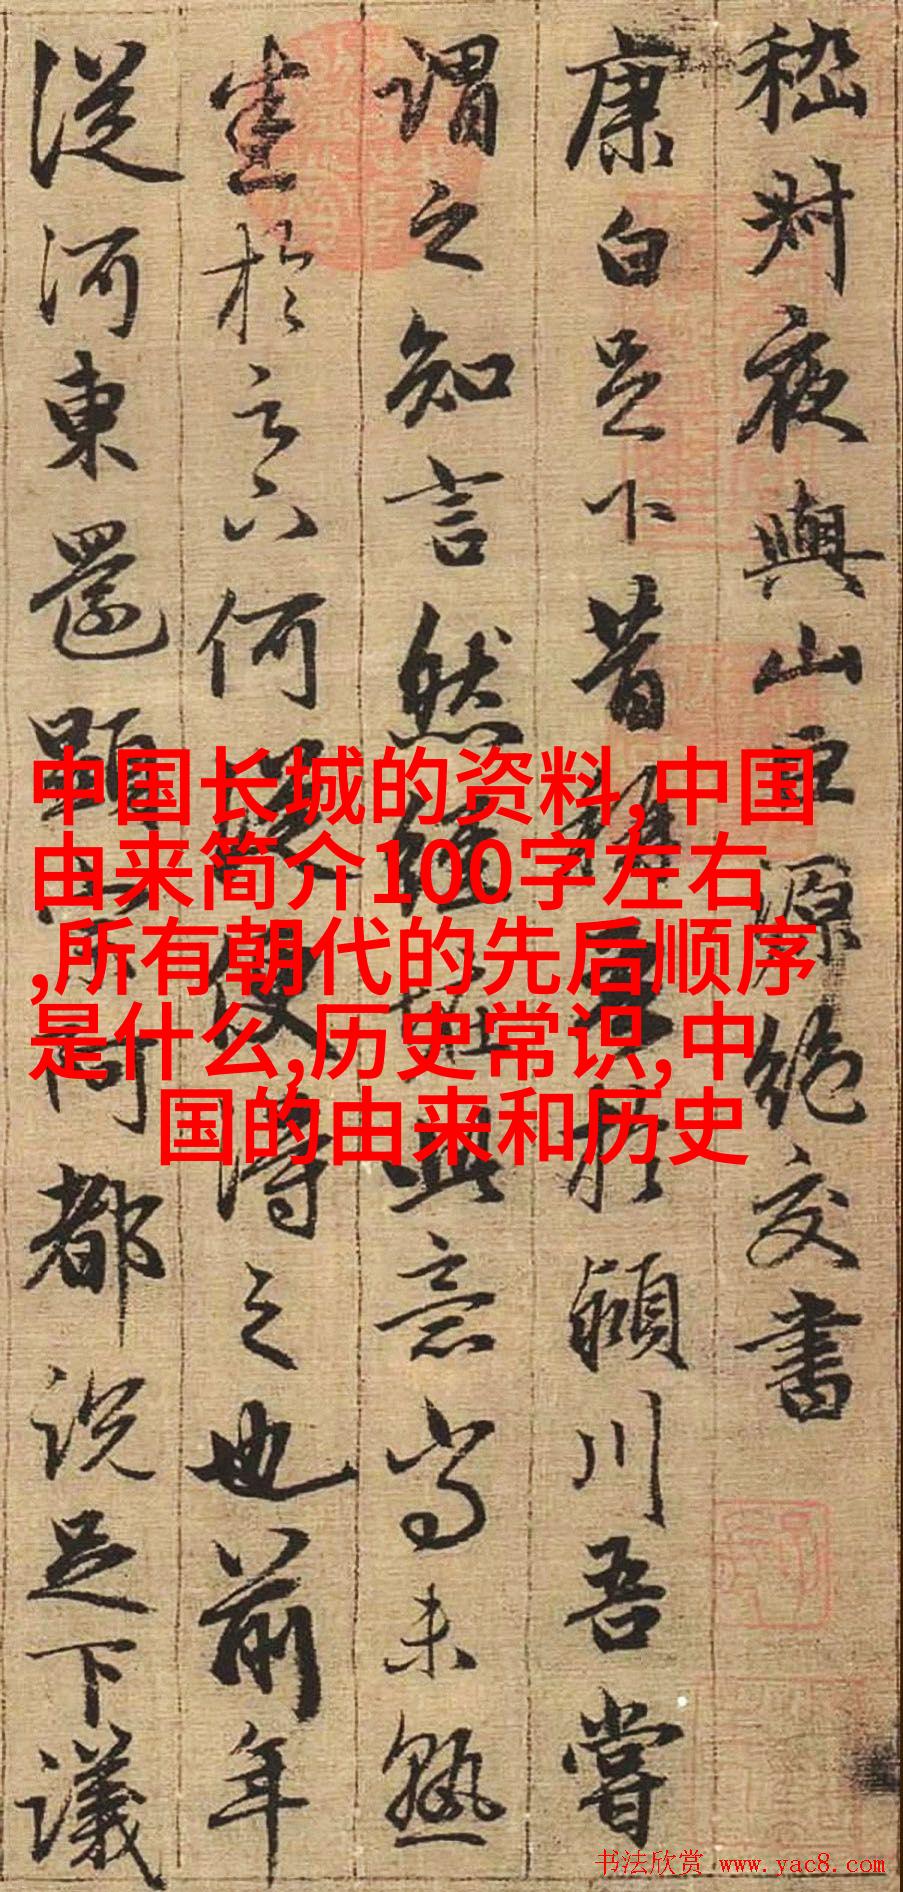 嵇叔夜與山巨源絶交書
康白足下昔稱吾於潁川吾嘗
謂之知言然經怪此意尚未熟
於足下何從便得之也前年
從河東還顯宗阿都說足下議
中国长城的资料,中国
由来简介100字左右
,所有朝代的先后顺序
是什么,历史常识,中
国的由来和历史
书法欣赏 www.yac8.com